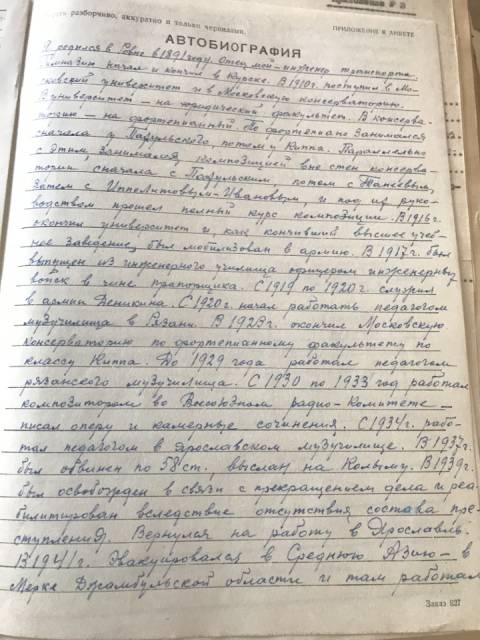 разборчиво, аккуратно и только чернилами.
ПРИЛОЖЕНИЕ К АНКЕТЕ
АВТОБИОГРАФИЯ
Я родился в Ровно в 1891 году. Отец мой – инженер транспорта.
Гимназию начал и кончил в Курске. В 1910 г. поступил в Мо-
сковский университет и в Московскую консерваторию.
В университет – на юридический факультет. В консерва-
торию – на фортепианный. По фортепиано занимался
сначала у Пабульского, потом у Киппа. Параллельно
с этим, занимался композицией вне стен консерва-
тории сначала с Пабульским, потом с Танеевым,
затем с Ипполитовым-Ивановым, и под их руко-
водством прошел полный курс композиции. В 1916 г.
окончил университет и, как кончивший высшее учеб-
ное заведение, был мобилизован в армию. В 1917 г. был
выпущен из инженерного училища офицером инженерных
войск в чине прапорщика. С 1919 по 1920 г. служил
в армии Деникина. С 1920 г. начал работать педагогом
музучилища в Рязани. В 1923 г. окончил Московскую
консерваторию по фортепианному факультету по
классу Киппа. До 1929 года работал педагогом
рязанского музучилища. С 1930 по 1933 год работал
композитором во Всесоюзном радио-комитете –
писал оперу и камерные сочинения. С 1934 г. рабо-
тал педагогом в Ярославском музучилище. В 1937 г.
был обвинен по 58 ст., выслан на Колыму. В 1939 г.
был освобожден в связи с прекращением дела и реа-
билитирован вследствие отсутствия состава пре-
ступления. Вернулся на работу в Ярославль.
В 1941 г. эвакуировался в Среднюю Азию – в
Мерке Джамбульской области и там работал
Заказ 827